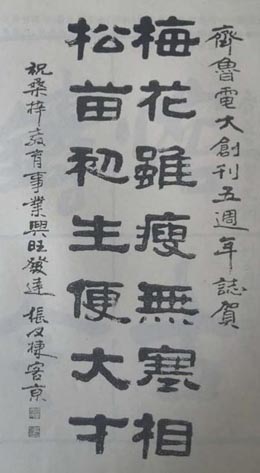 齊魯電大創刊五週年誌賀
梅花雖瘦無寒相
松苗初生便大才
祝桑梓教育事業興旺發達 張又棟客京